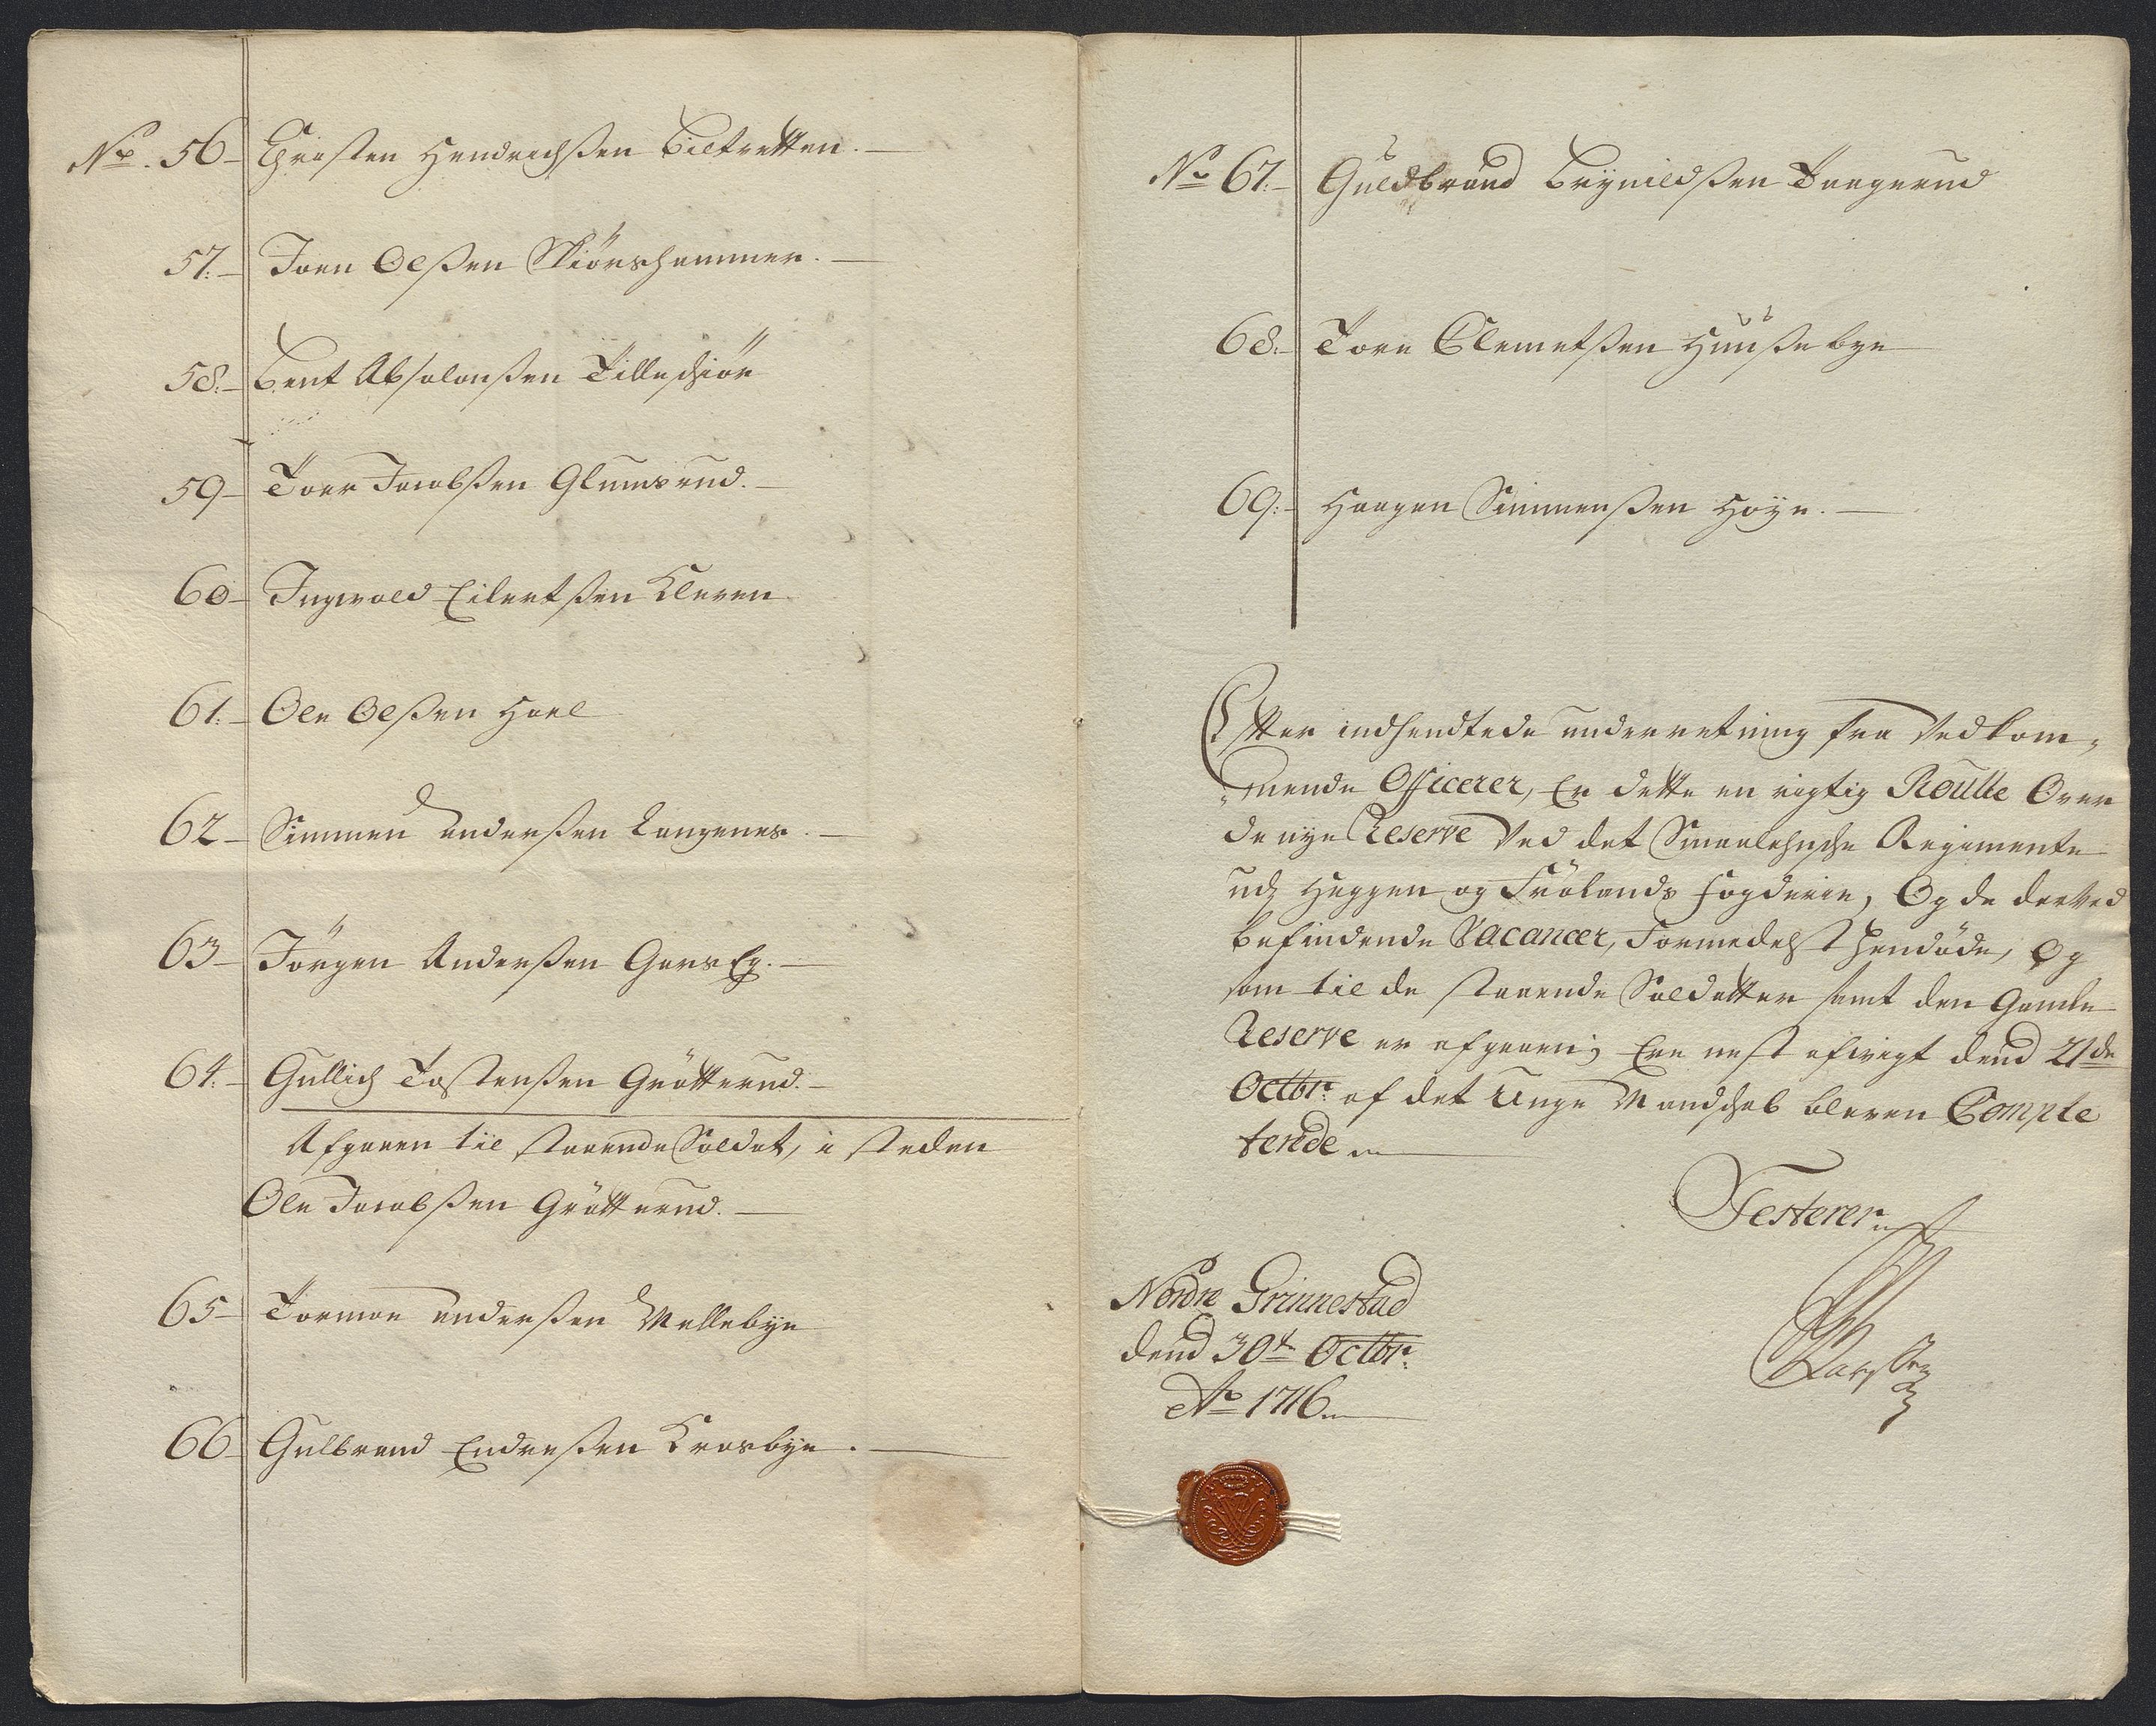 No. 56 Christen Hendrichßen Biltretten.
57. Joen Olßen Skiørshammer.
58. Bent Absolonßen Tilleskiør
59 Toer Jacobßen Glumsrud.
60 Ingwold Eilertßen Kleven
61. Ole Olßen Hoel
62 Simmen Anderßen Langenes.
63 Jörgen Anderßen Gars Eg.
64. Gullich Tostenßen Grötterud.
Afgaaen til staaende Soldat, i steden
Ole Jacobßen Grötterud.
65 Tormoe Anderßen Mellebÿe
66 Gulbrand Endreßen Krosbÿe.
No 67. Guldbrand Brÿnildßen Taagerud
68. Tore Clemetßen Huußebye
69. Haagen Simmenßen Hoÿe.
Efter indsendtede underretning fra Vedkom-
mende Officerer, Er dette en rigtig Roulle Over
de nÿe Reserve Ved det Smaalehnske Regimente
udj Heggen og Frölands fogderie, Og de derVed
befindende Vacancer, Formedelst hendöde, Og
som til de staaende Soldatter samt den Gamle
Reserve er afgaaen; Ere nest afvigt dend 21de
Octbr. af det Unge Mandskab bleven Comple
terede
Testerer
Nordre Grinnestad
dend 30t Octbr.
Ao 1716.
Larssen